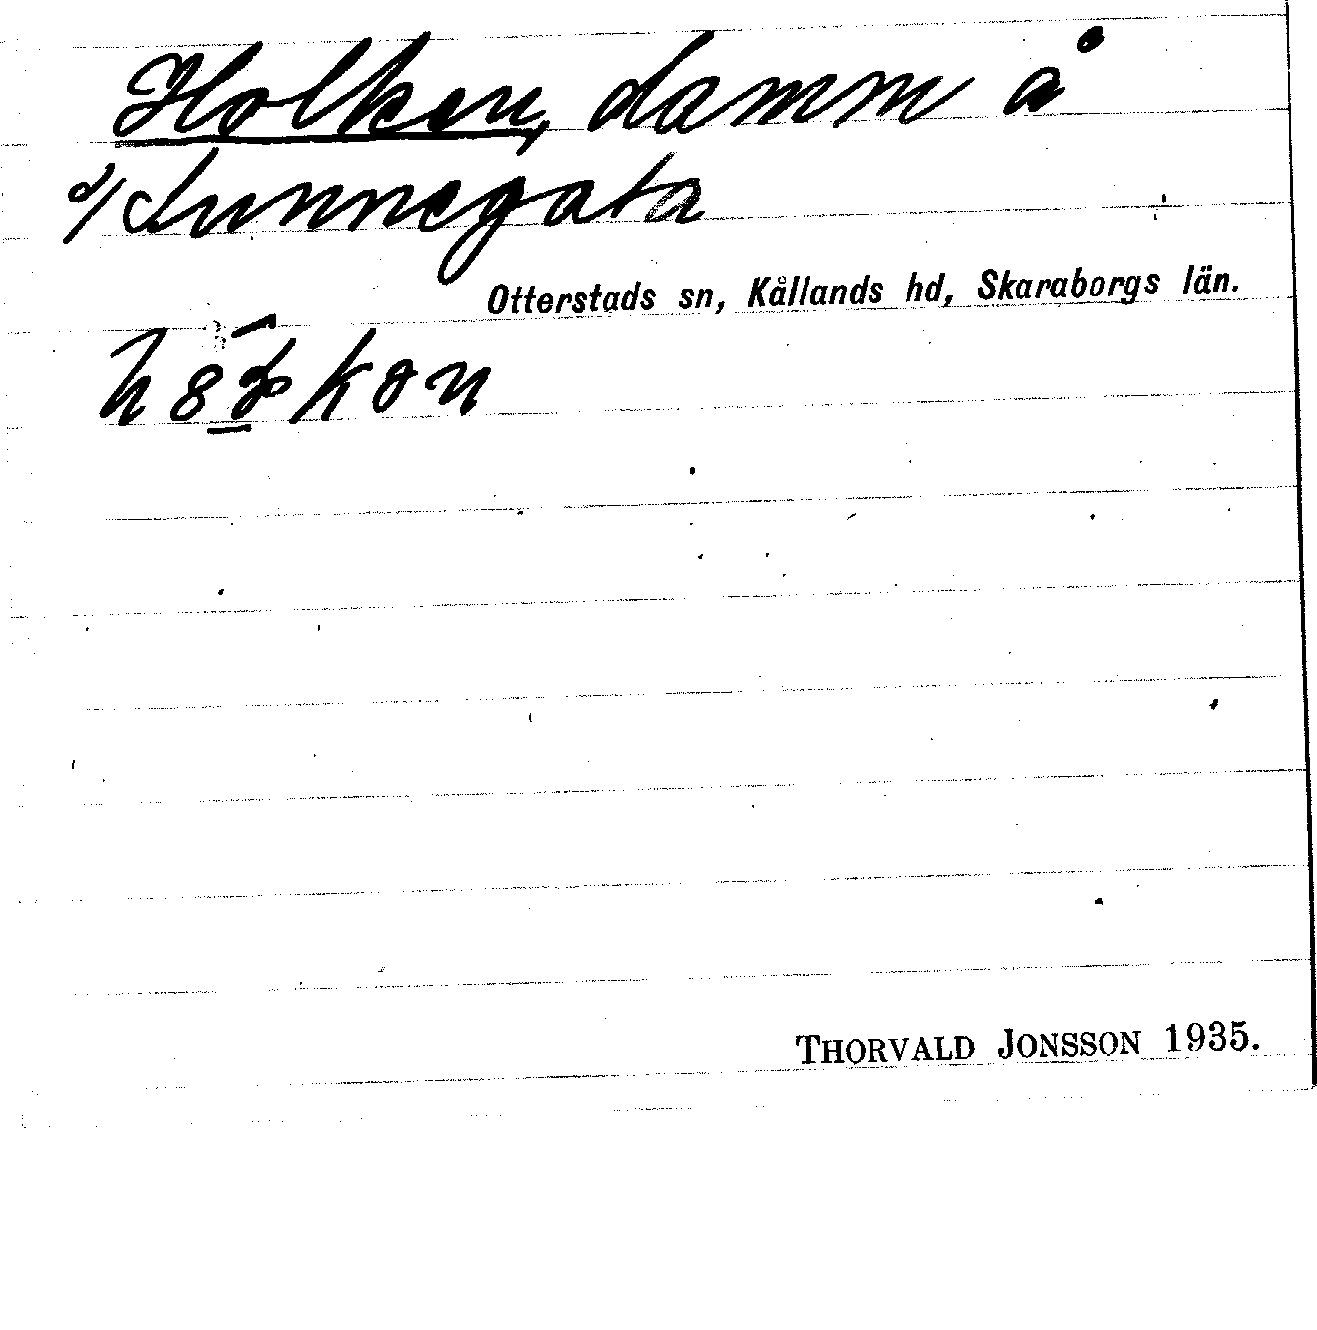 Holken, damm å
d/ Sunnegata
Otterstads sn, Kållands hd, Skaraborgs län.
THORVALD JONSSON 1935.